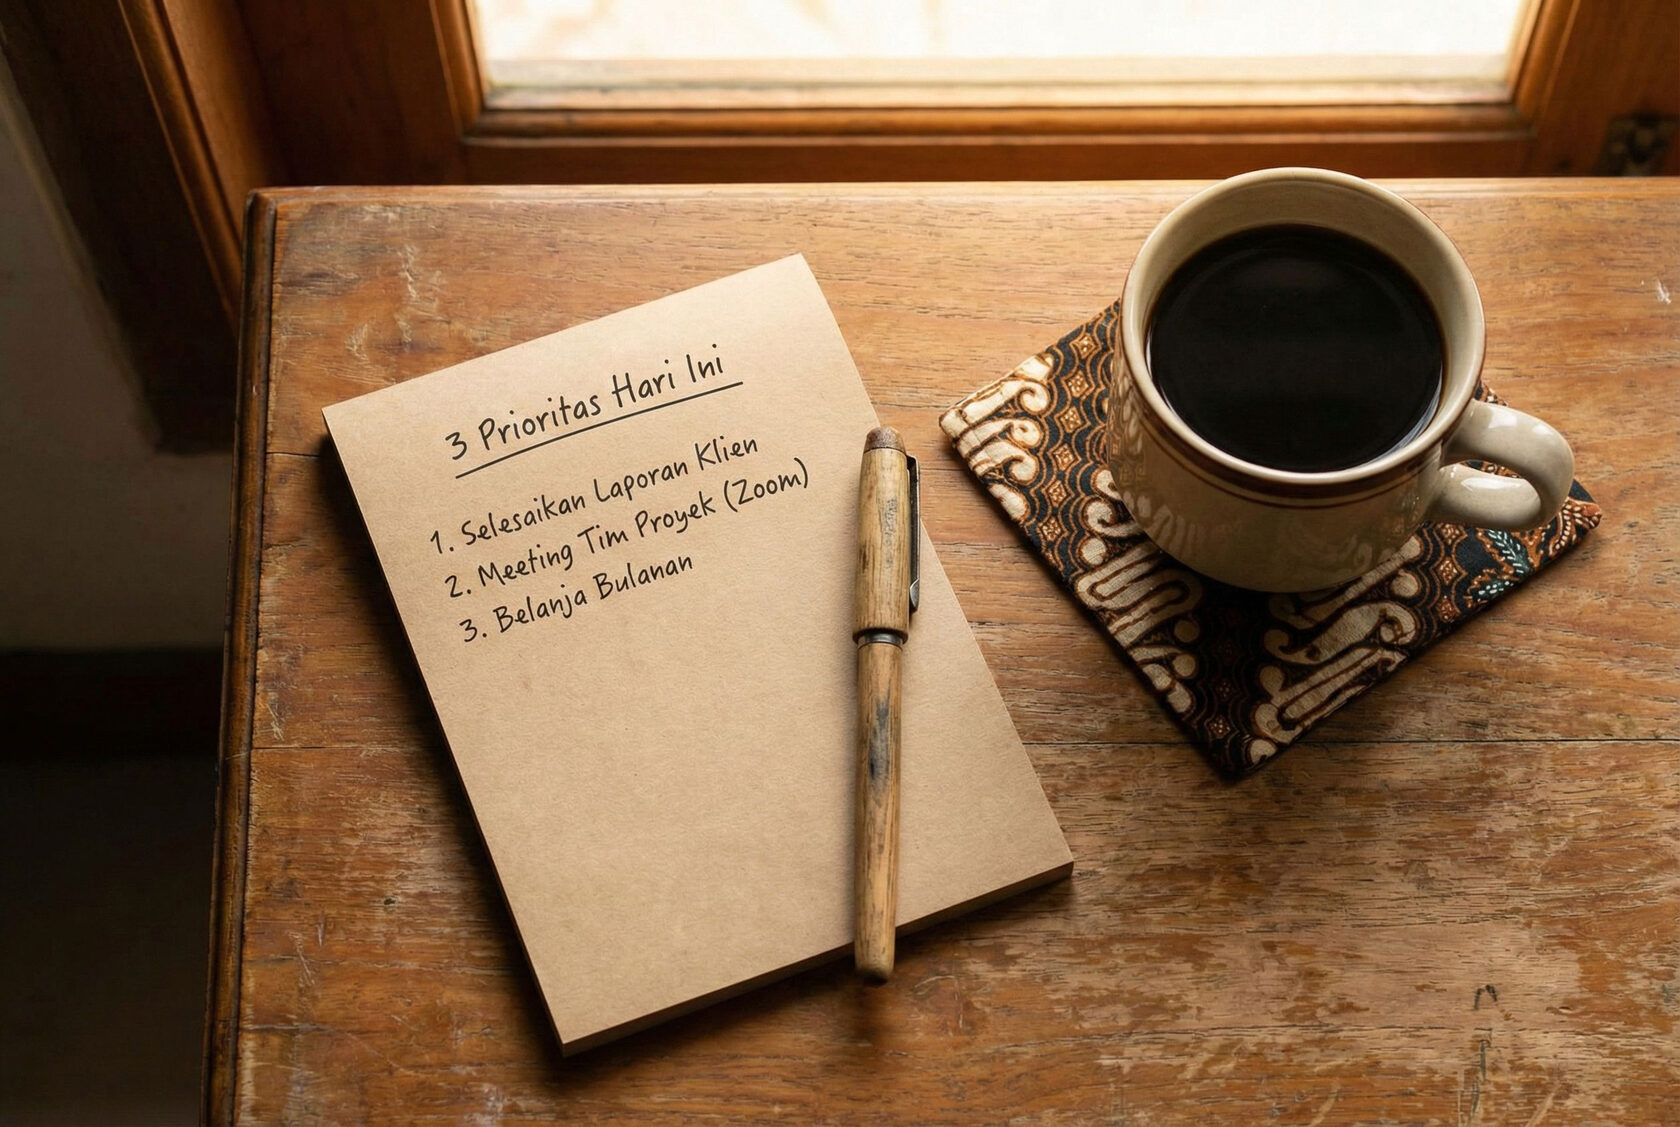 3 Prioritas Hari Ini
1. Selesaikan Laporan Klien
2. Meeting Tim Proyek (Zoom)
3. Belanja Bulanan